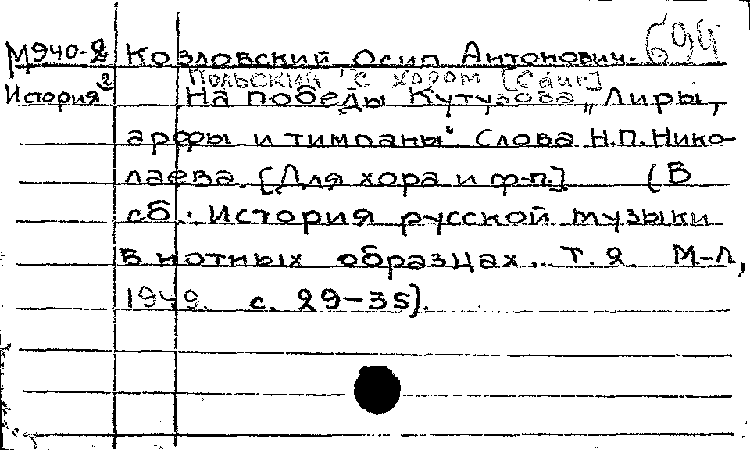 М940-2 Козловский Осип Антонович. 694
Польский с хором
История 2 На победы Кутузова „Лиры,
арфы и тимпаны" Слова Н.П. Нико-
лаева. [Для хора и ф-п.] (В
сб. История русской музыки
в нотных образцах. т. 2 М-Л,
1949. с. 29-35).